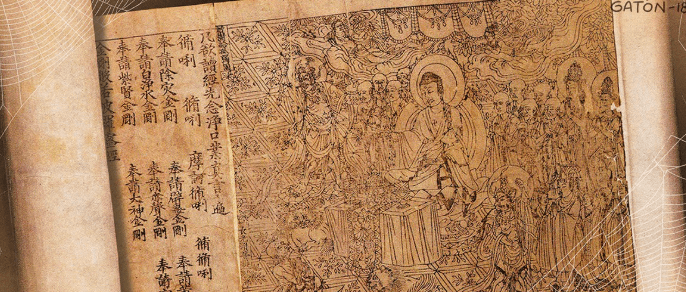 GATON-18
凡欲讀經先念淨口業真言一遍
脩唎 脩唎 摩訶脩唎 脩脩唎
奉請除災金剛 奉請辟毒金剛 奉請
奉請白淨水金剛 奉請赤聲金剛 奉請
奉請紫賢金剛 奉請大神金剛
金剛般若波羅蜜經